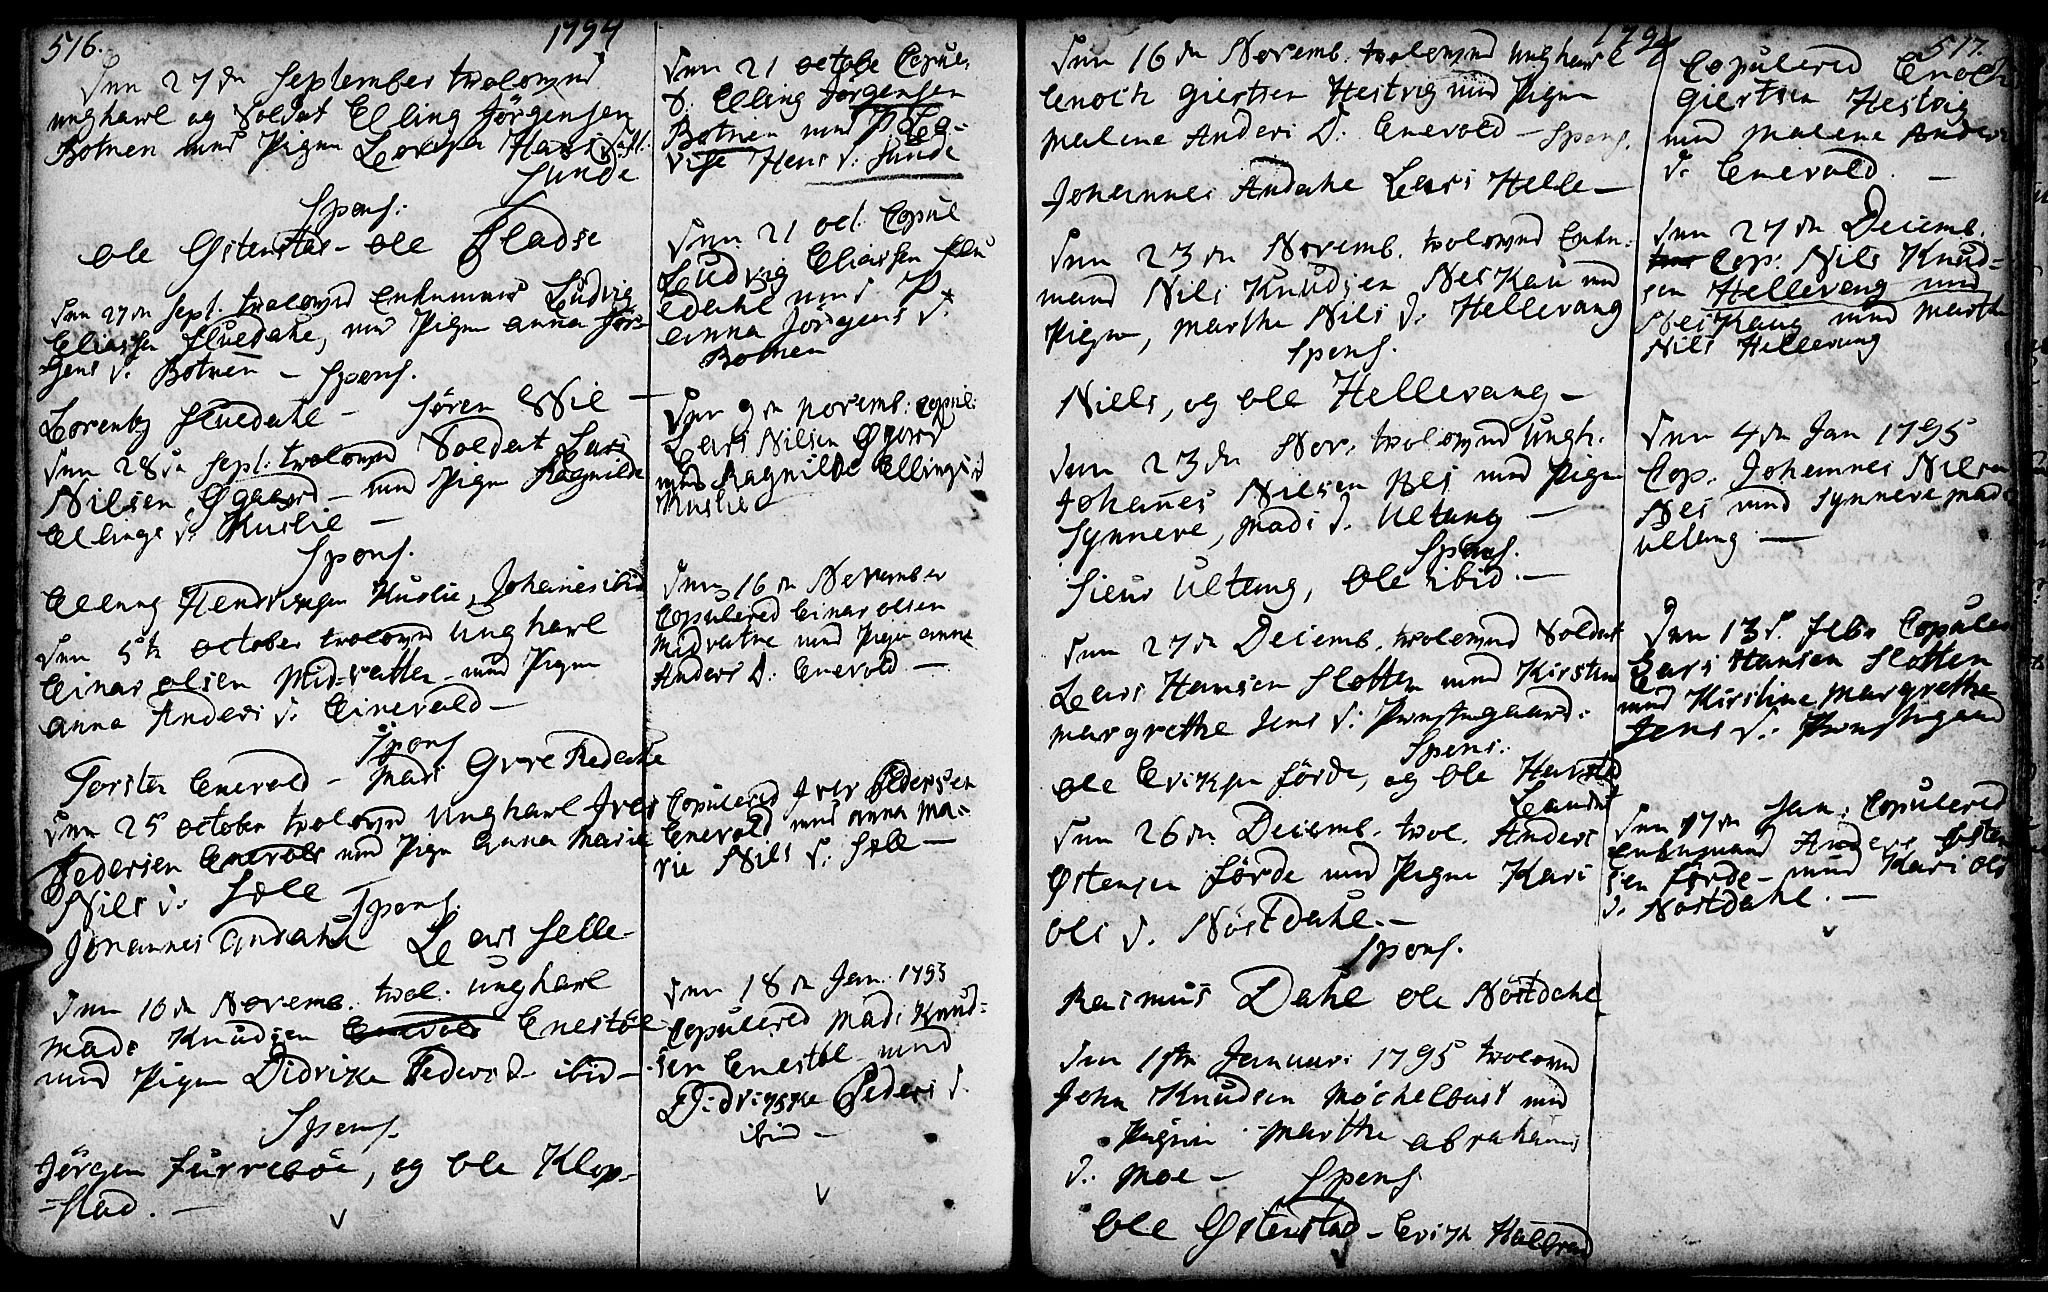 516.
1794
Den 27de September trolovved
ungkarl og Soldat Elling Jörgensen
Botnen med Pigen Lovisa Hans datt.
Sunde
Spons.
Ole Østenstad - Ole Fladse
Den 27de Sept. trolovved Enkemand Ludvig
Eliassen fluedahl, med Pigen anna Jör-
gens d. Botnen - Spons.
Lorentz fluedahl - Sören Wie -
Den 28de Sept. trolovved Soldat Lars
Nilsen Øgaard - med Pigen Ragnilde
Ellings d. Kuslie -
Spons.
Elling Kuslie, Johanes ibid
Den 5te october trolovved Ungkarl
Einar olsen Midvatten - med Pigen
anna Anders d. Einevold -
Spons.
Torsten Enevold - Mads Øvre Redahl
Den 25 october trolovved Ungkarl Iver
Pedersen Enevold med Pigen Anna Marie
Nils d. Sole
Spons.
Johannes Andahl Lars Selle -
Den 16de Novemb. trol. ungkarl
Mads Knudsen Enevold Enestøl
med Pigen Didrike Peders d. ibid -
Spons.
Jörgen furreböe, og Ole Klop-
=stad. -
Den 21 octobe Copul.
S. Elling Jörgensen
Botnen med P. Lo-
vise Hens d. Sunde
Den 21 oct. Copul
Ludvig Eliassen flu
edahl med P.
anna Jörgens d.
Botnen
Den 9de novemb. copul.
Lars Nilsen Øgaard
med Ragnilde Ellings d
Kuslie
Den 16de November
Copulered Einar olsen
Midvatne med Pigen anna
Anders d. Enevold -
Copulered Iver Pedersen
Enevold med anna Ma-
rie Nils d. Sole -
Den 18de Jan. 1795
Copulered Mads Knud-
sen Enestøl med
Didrikke Peders d.
ibid -
1794
517.
Den 16de Novemb. trolovved ungkarl
Enoch Giertsen Hestvig med Pigen
Malene Anders d. Enevold - Spons.
Johannes Andahl Lars Helle -
Den 23de Novemb. trolovved Enke-
mand Nils Knudsen Neskau med
Pigen, Marthe Nils d. Hellevang
Spons.
Niels, og Ole Hellevang -
Den 23de Nov. trolovved Ungk.
Johanes Nilsen Nes med Pigen
Synneve, Mads d. Ultang -
Spons.
Ultang, Ole ibid. -
Den 27de Decemb. trolovved Soldat
Lars Hansen Slotten med Kirstine
margrethe Jens d.
Spons.
Ole Erikssen förde, og Ole
Den 26de Decemb. trol. Anders
Østensen förde med Pigen Kari
Ols d. Nöstdahl. -
Spons.
Rasmus Dahl Ole Nöstdahl
Den 1ste Januari 1795 trolovved
John Knudsen Möchelbust med
Pigen Marthe abrahams
d. Moe - Spons
Ole Østenstad - Erich
Copulered Enoch
Giertsen Hestvig
med Malene Anders
d. Enevold. -
Den 27de Decemb.
Cop. Nils Knud-
sen Hellevang med
Neskaug med Marthe
Nils Hellevang
Den 4de Jan 1795
Cop. Johannes Nilsen
Nes med Synneve Mads
Ultang -
Den 13d. febr Copulered
Lars Hansen Slotten
med Kirstine Margrethe
Jens d.
Den 17de Jan: Copulered
Enkemand Anders Østen
sen förde - med Kari Ols
d. Nöstdahl. -